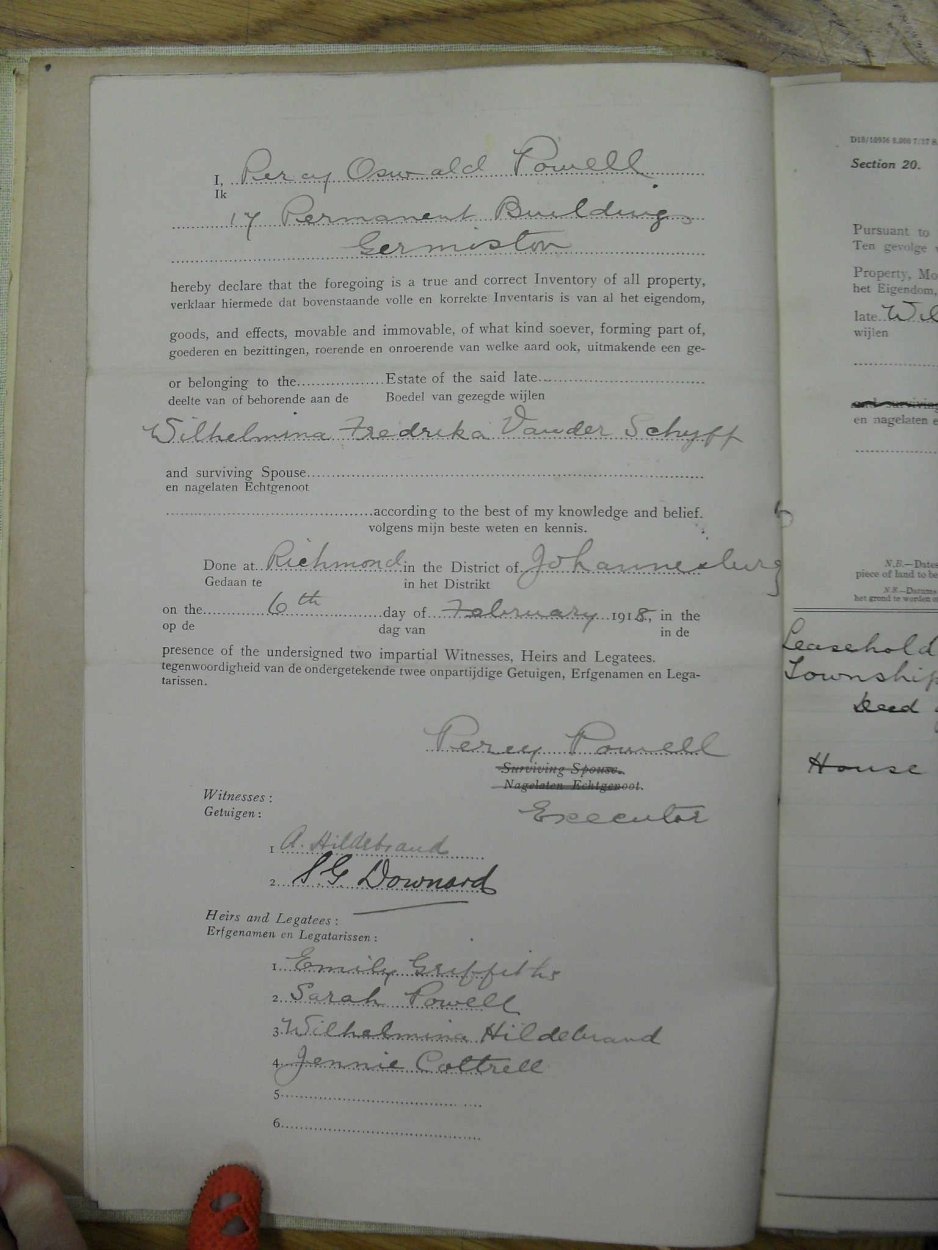 I, Percy Oswald Powell
Ik
17 Permanent Buildings
Germiston
hereby declare that the foregoing is a true and correct Inventory of all property,
verklaar hiermede dat bovenstaande volle en korrekte Inventaris is van al het eigendom,
goods, and effects, movable and immovable, of what kind soever, forming part of,
goederen en bezittingen, roerende en onroerende van welke aard ook, uitmakende een ge-
or belonging to the................Estate of the said late
deelte van of behorende aan de Boedel van gezegde wijlen
Wilhelmina Fredrika Van der Schyff
and surviving Spouse
en nagelaten Echtgenoot
according to the best of my knowledge and belief.
volgens mijn beste weten en kennis.
Done at Richmond in the District of Johannesburg
Gedaan te in het Distrikt
on the 6th day of February 1918, in the
op de dag van in de
presence of the undersigned two impartial Witnesses, Heirs and Legatees.
tegenwoordigheid van de ondergetekende twee onpartijdige Getuigen, Erfgenamen en Lega-
tarissen.
Percy Powell
Surviving Spouse.
Nagelaten Echtgenoot.
Executor
Witnesses:
Getuigen:
1 A. Hildebrand
2. S G Downard
Heirs and Legatees:
Erfgenamen en Legatarissen:
1. Emily Griffiths
2. Sarah Powell
3. Wilhelmina Hildebrand
4. Jennie Cottrell
5.
6.
Section 20.
Pursuant to
Ten gevolge
Property, Mo
het Eigendom,
late Wil
wijlen
and surviving
en nagelaten e
N.B.—Dates
piece of land to be
N.B.—Datums
het grond te worden o
Leasehold
Township
Deed
House